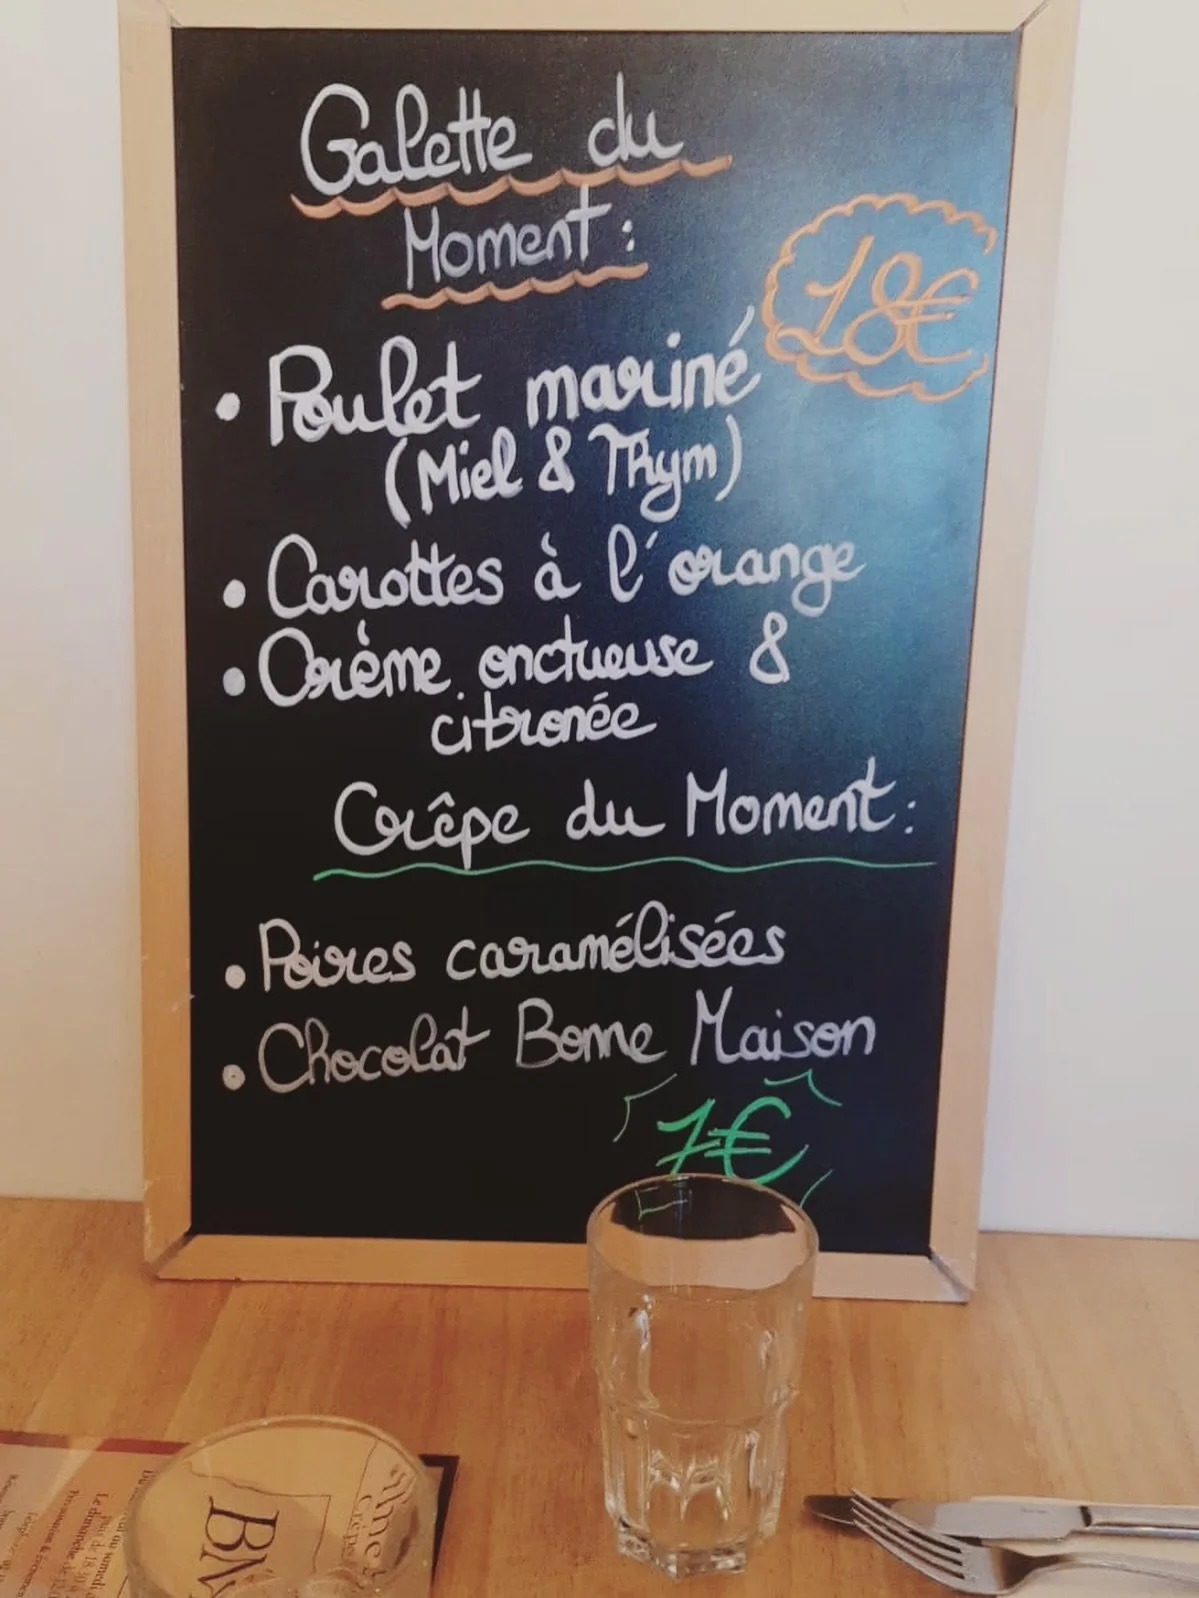 Galette du
Moment :
18€
• Poulet mariné
(Miel & Thym)
• Carottes à l'orange
• Crème onctueuse &
citronée
Crêpe du Moment :
• Poires caramélisées
• Chocolat Bonne Maison
7€
BM